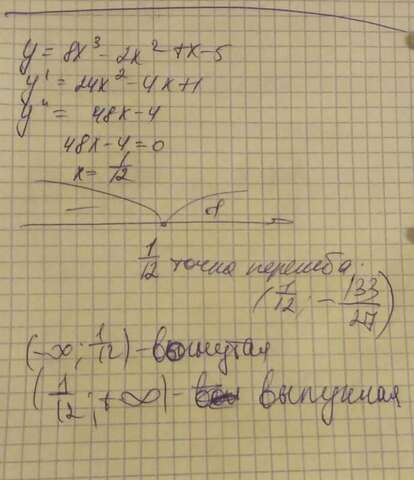 y = 8x³ - 2x² + x - 5
y' = 24x² - 4x + 1
y'' = 48x - 4
48x - 4 = 0
x = 1/12
— +
1/12 точка перегиба
(1/12; -133/27)
(-∞; 1/12) - вогнутая
(1/12; +∞) - выпуклая